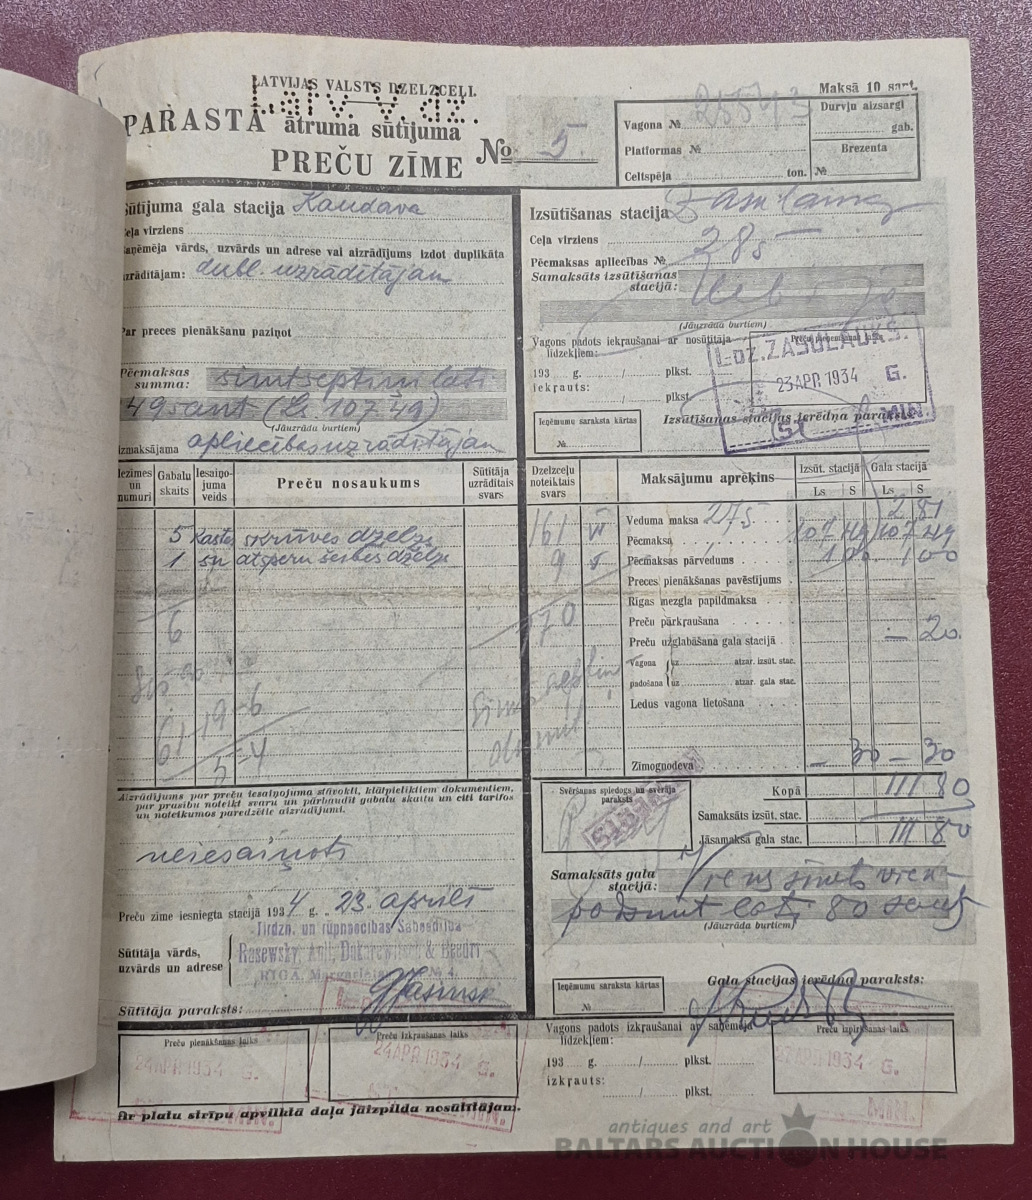 LATVIJAS VALSTS DZELZCEĻI.
Latv. v. dz.
PARASTA ātruma sūtījuma
PREČU ZĪME
№ 5.
Maksā 10 sant.
Vagona № 25543
Platformas №
Celtspēja ton.
Durvju aizsargi
gab.
Brezenta
№
Sūtījuma gala stacija Kandava
Ceļa virziens
Saņēmēja vārds, uzvārds un adrese vai aizrādījums izdot duplikāta
uzrādītājam: dubl. uzrādītājam
Par preces pienākšanu paziņot
Pēcmaksas
summa: simtseptiņi lati
49 sant (Ls 107.49)
(Jāuzrāda burtiem)
Izmaksājama apliecības uzrādītājam
Izsūtīšanas stacija
Ceļa virziens
Pēcmaksas apliecības № 285
Samaksāts izsūtīšanas
stacijā:
(Jāuzrāda burtiem)
Vagons padots iekraušanai ar nosūtītāja
līdzekļiem:
193 g. / plkst.
iekrauts: / plkst.
L. DZ. ZASULAUKS.
23 APR. 1934 G.
ST. MIN.
Ieņēmumu saraksta kārtas
№
Izsūtīšanas stacijas ierēdņa paraksts:
Iezīmes un numuri
Gabalu skaits
Iesaiņojuma veids
Preču nosaukums
Sūtītāja uzrādītais svars
Dzelzceļu noteiktais svars
Maksājumu aprēķins
Izsūt. stacijā
Gala stacijā
Ls S Ls S
5 kastes skrūves dzelzs 161
1 sn atsperu šeibes dzelzs 9
6
170
Veduma maksa 275 2 81
Pēcmaksa 107 49 107 49
Pēcmaksas pārvedums 1 00 1 00
Preces pienākšanas pavēstījums
Rīgas mezgla papildmaksa
Preču pārkraušana
Preču uzglabāšana gala stacijā — 20
Vagona uz atzar. izsūt. stac.
padošana uz atzar. gala stac.
Ledus vagona lietošana
Zīmognodeva — 30 — 30
Kopā 111 80
Samaksāts izsūt. stac.
Jāsamaksā gala stac. 111 80
Aizrādījums par preču iesaiņojuma stāvokli, klātpieliktiem dokumentiem,
par prasību noteikt svaru un pārbaudīt gabalu skaitu un citi tarifos
un noteikumos paredzētie aizrādījumi.
neiesaiņots
Svēršanas spiedogs un svērēja
paraksts
Samaksāts gala
stacijā: Viens simts vien-
padsmit lati 80 sant
(Jāuzrāda burtiem)
Preču zīme iesniegta stacijā 1934 g. 23. aprīlī
Sūtītāja vārds,
uzvārds un adrese
Tirdzn. un rūpniecības Sabiedrība
Sūtītāja paraksts:
Ieņēmumu saraksta kārtas
№
Gala stacijas ierēdņa paraksts:
Preču pienākšanas laiks
24 APR 1934 G.
Preču izkraušanas laiks
24 APR 1934 G.
Vagons padots izkraušanai ar saņēmēja
līdzekļiem:
193 g. / plkst.
izkrauts: / plkst.
Preču izpirkšanas laiks
27 APR 1934 G.
Ar platu strīpu apvilktā daļa jāizpilda nosūtītājam.
antiques and art
BALTARS AUCTION HOUSE